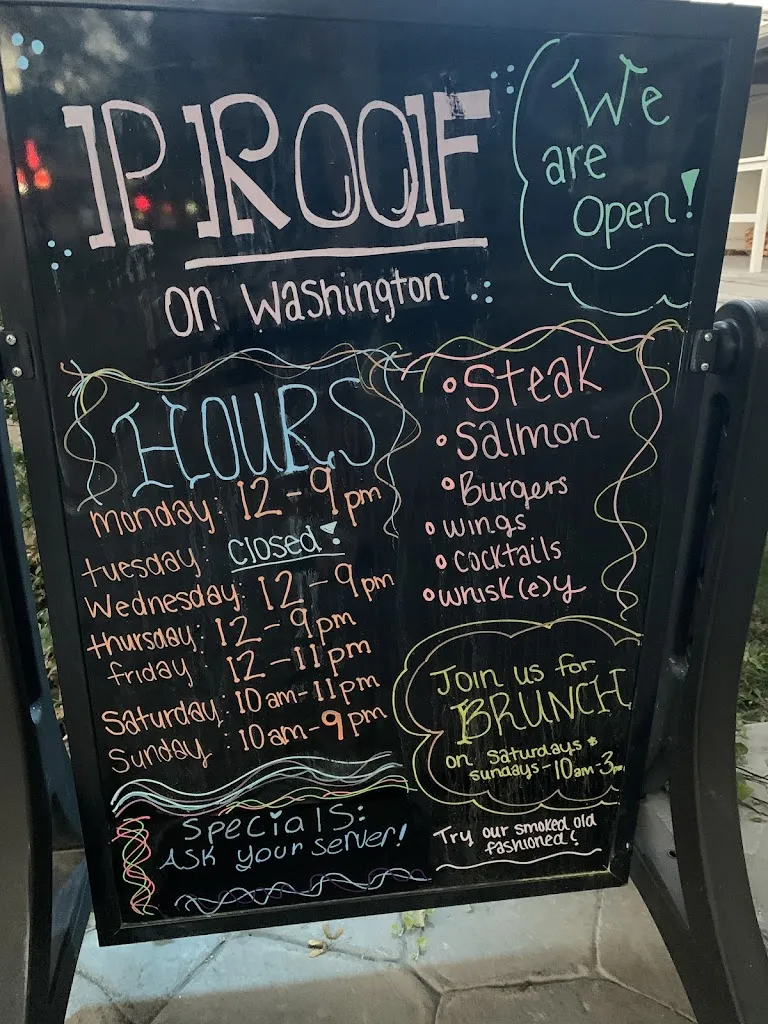 PROOF
on Washington
We
are
open!
HOURS
monday: 12-9pm
tuesday: closed!
Wednesday: 12-9pm
thursday: 12-9pm
friday 12-11pm
Saturday: 10am-11pm
Sunday: 10am-9pm
Steak
Salmon
Burgers
wings
cocktails
whisk(e)y
Join us for
BRUNCH
on saturdays &
sundays-10am-3pm
Specials:
ASK your server!
Try our smoked old
fashioned!